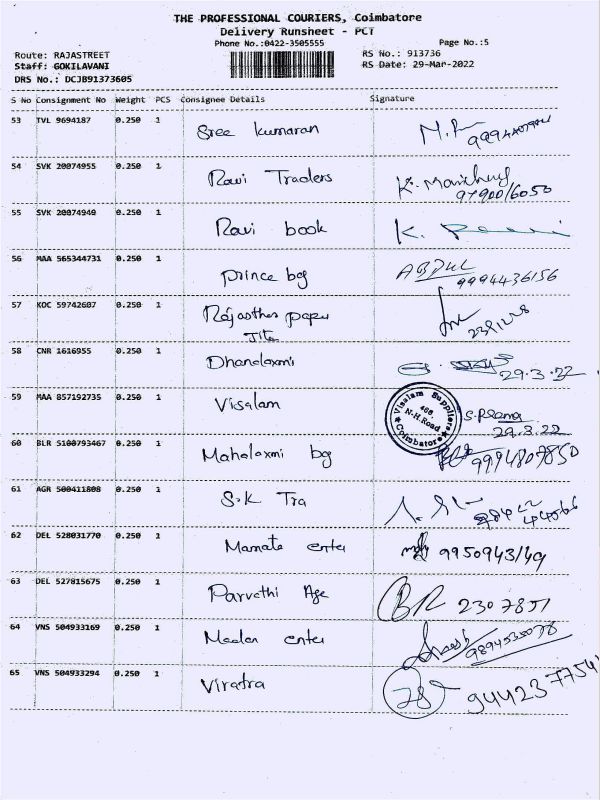 THE PROFESSIONAL COURIERS, Coimbatore
Delivery Runsheet - PCT
Phone No.:0422-3505555
Page No.:5
Route: RAJASTREET
RS No.: 913736
Staff: GOKILAVANI
RS Date: 29-Mar-2022
DRS No.: DCJB91373605
S No Consignment No Weight PCS Consignee Details Signature
53 TVL 9694187 0.250 1 Sree Kumaran
54 SVK 20074955 0.250 1 Ravi Traders K.
9790016050
55 SVK 20074949 0.250 1 Ravi book K.
56 MAA 565344731 0.250 1 prince bg ABDUL
9994436156
57 KOC 59742607 0.250 1 Rajasthan paper
58 CNR 1616955 0.250 1 Dhanalaxmi
29.3.22
59 MAA 857192735 0.250 1 Visalam
Visalam Suppliers
N.H.Road
Coimbatore
29.3.22
60 BLR 5100793467 0.250 1 Mahalaxmi bg 9994807850
61 AGR 500411808 0.250 1 S.K Tra
62 DEL 528031770 0.250 1 Mamata enter 9950943149
63 DEL 527815675 0.250 1 Parvathi Age BR 2307851
64 VNS 504933169 0.250 1 enter
65 VNS 504933294 0.250 1 Viratra 9442377541